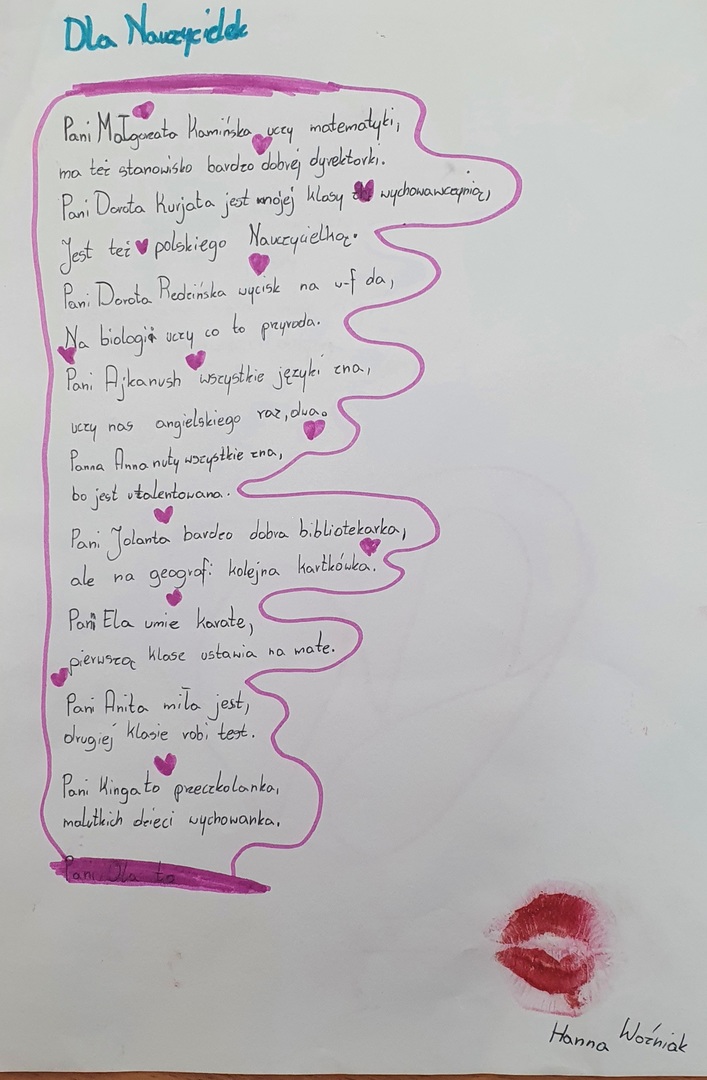 Dla Nauczycielek
Pani Małgorzata Kamińska uczy matematyki,
ma też stanowisko bardzo dobrej dyrektorki.
Pani Dorota Kurjata jest mojej klasy wychowawczynią,
Jest też polskiego Nauczycielką.
Pani Dorota Redzińska wycisk na w-f da,
Na biologii uczy co to przyroda.
Pani Ajkanush wszystkie języki zna,
uczy nas angielskiego raz, dwa.
Panna Anna nuty wszystkie zna,
bo jest utalentowana.
Pani Jolanta bardzo dobra bibliotekarka,
ale na geografi kolejna kartkówka.
Pani Ela umie karate,
pierwszą klase ustawia na mate.
Pani Anita miła jest,
drugiej klasie robi test.
Pani Kinga to przeczkolanka,
malutkich dzieci wychowanka.
Pani Ola to
Hanna Woźniak